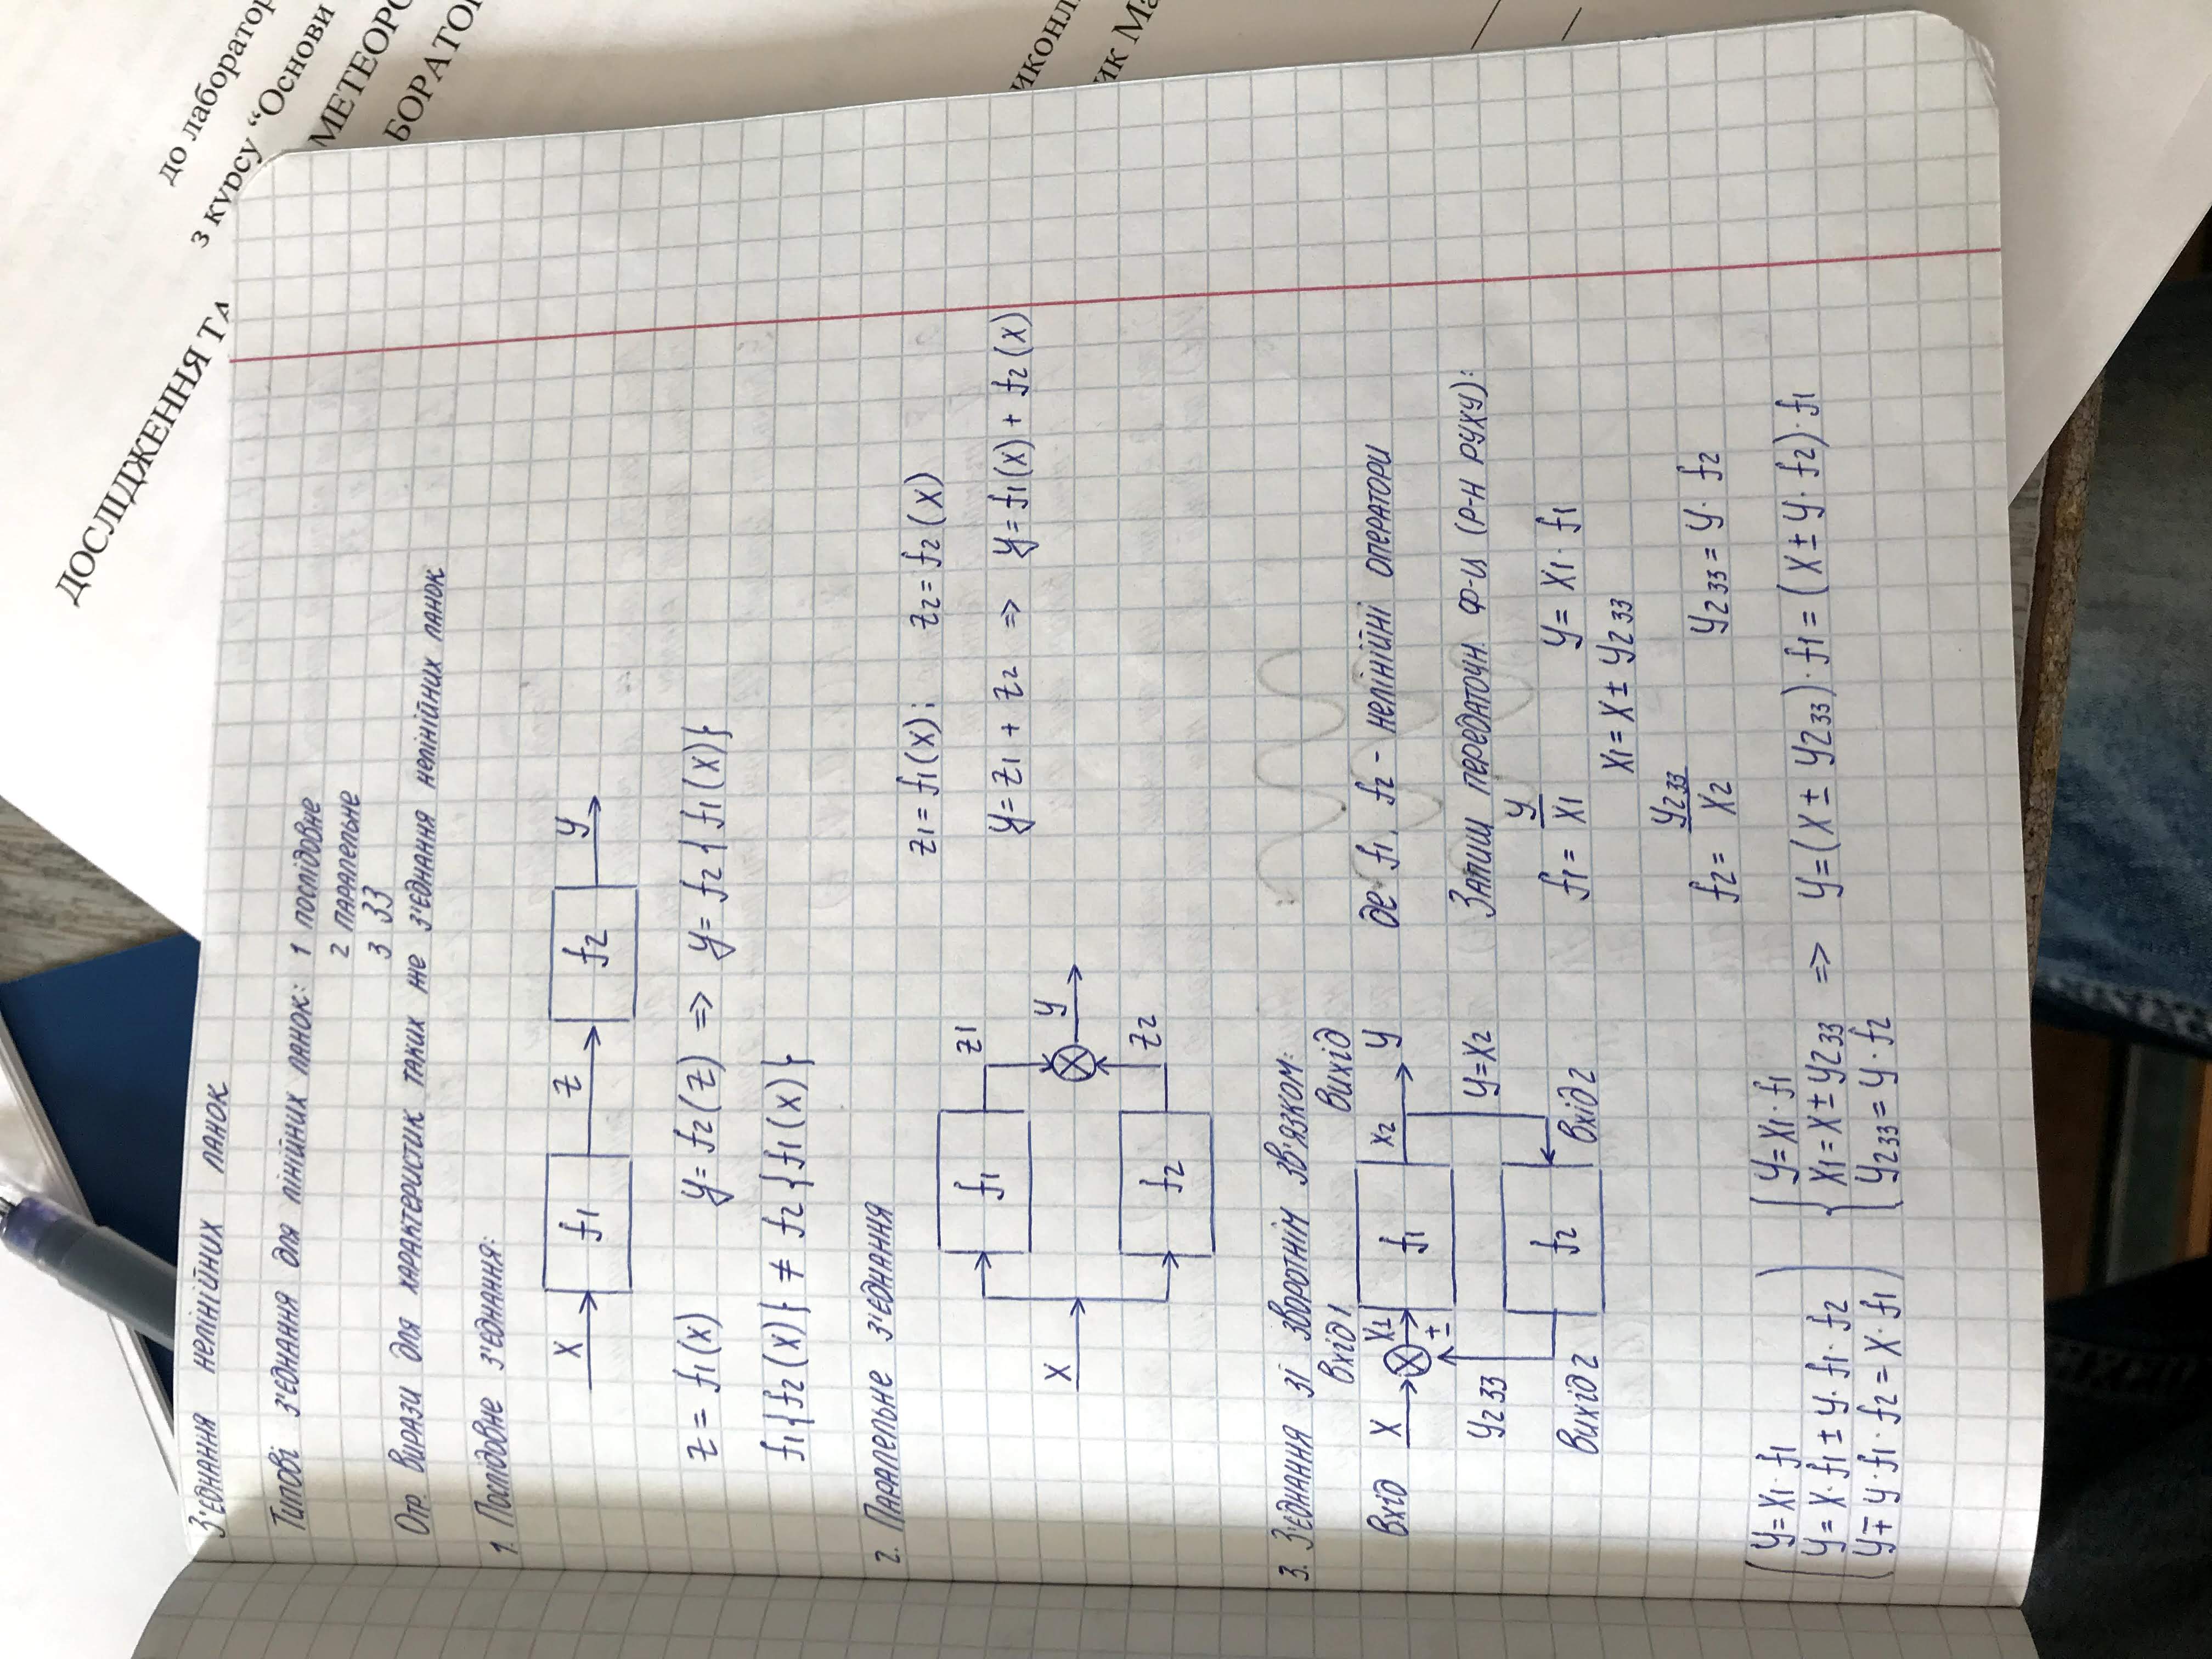 З'єднання нелінійних ланок
Типові з'єднання для лінійних ланок: 1 послідовне
2 паралельне
3 ЗЗ
Отр. вирази для характеристик таких же з'єднання нелінійних ланок
1. Послідовне з'єднання:
X f1 z f2 y
z = f1(x) y = f2(z) => y = f2{f1(x)}
f1{f2(x)} ≠ f2{f1(x)}
2. Паралельне з'єднання
z1 = f1(x); z2 = f2(x)
y = z1 + z2 => y = f1(x) + f2(x)
f1 z1
X y
f2 z2
3. З'єднання зі зворотнім зв'язком:
Вхід 1 Вихід
Вхід X X1 f1 X2 y
±
y2 зз y = X2
Вихід 2 f2 Вхід 2
де f1, f2 - нелінійні оператори
Запиш передаточн. ф-ц (р-н руху):
f1 = y/X1 y = X1 · f1
X1 = X ± y2 зз
f2 = y2 зз/X2 y2 зз = y · f2
y = X1 · f1
y = X · f1 ± y · f1 · f2
y ∓ y · f1 · f2 = X · f1
y = X1 · f1
X1 = X ± y2 зз => y = (X ± y2 зз) · f1 = (X ± y · f2) · f1
y2 зз = y · f2
ДОСЛІДЖЕННЯ ТА
до лаборатор
з курсу “Основи
МЕТЕОРО
БОРАТО